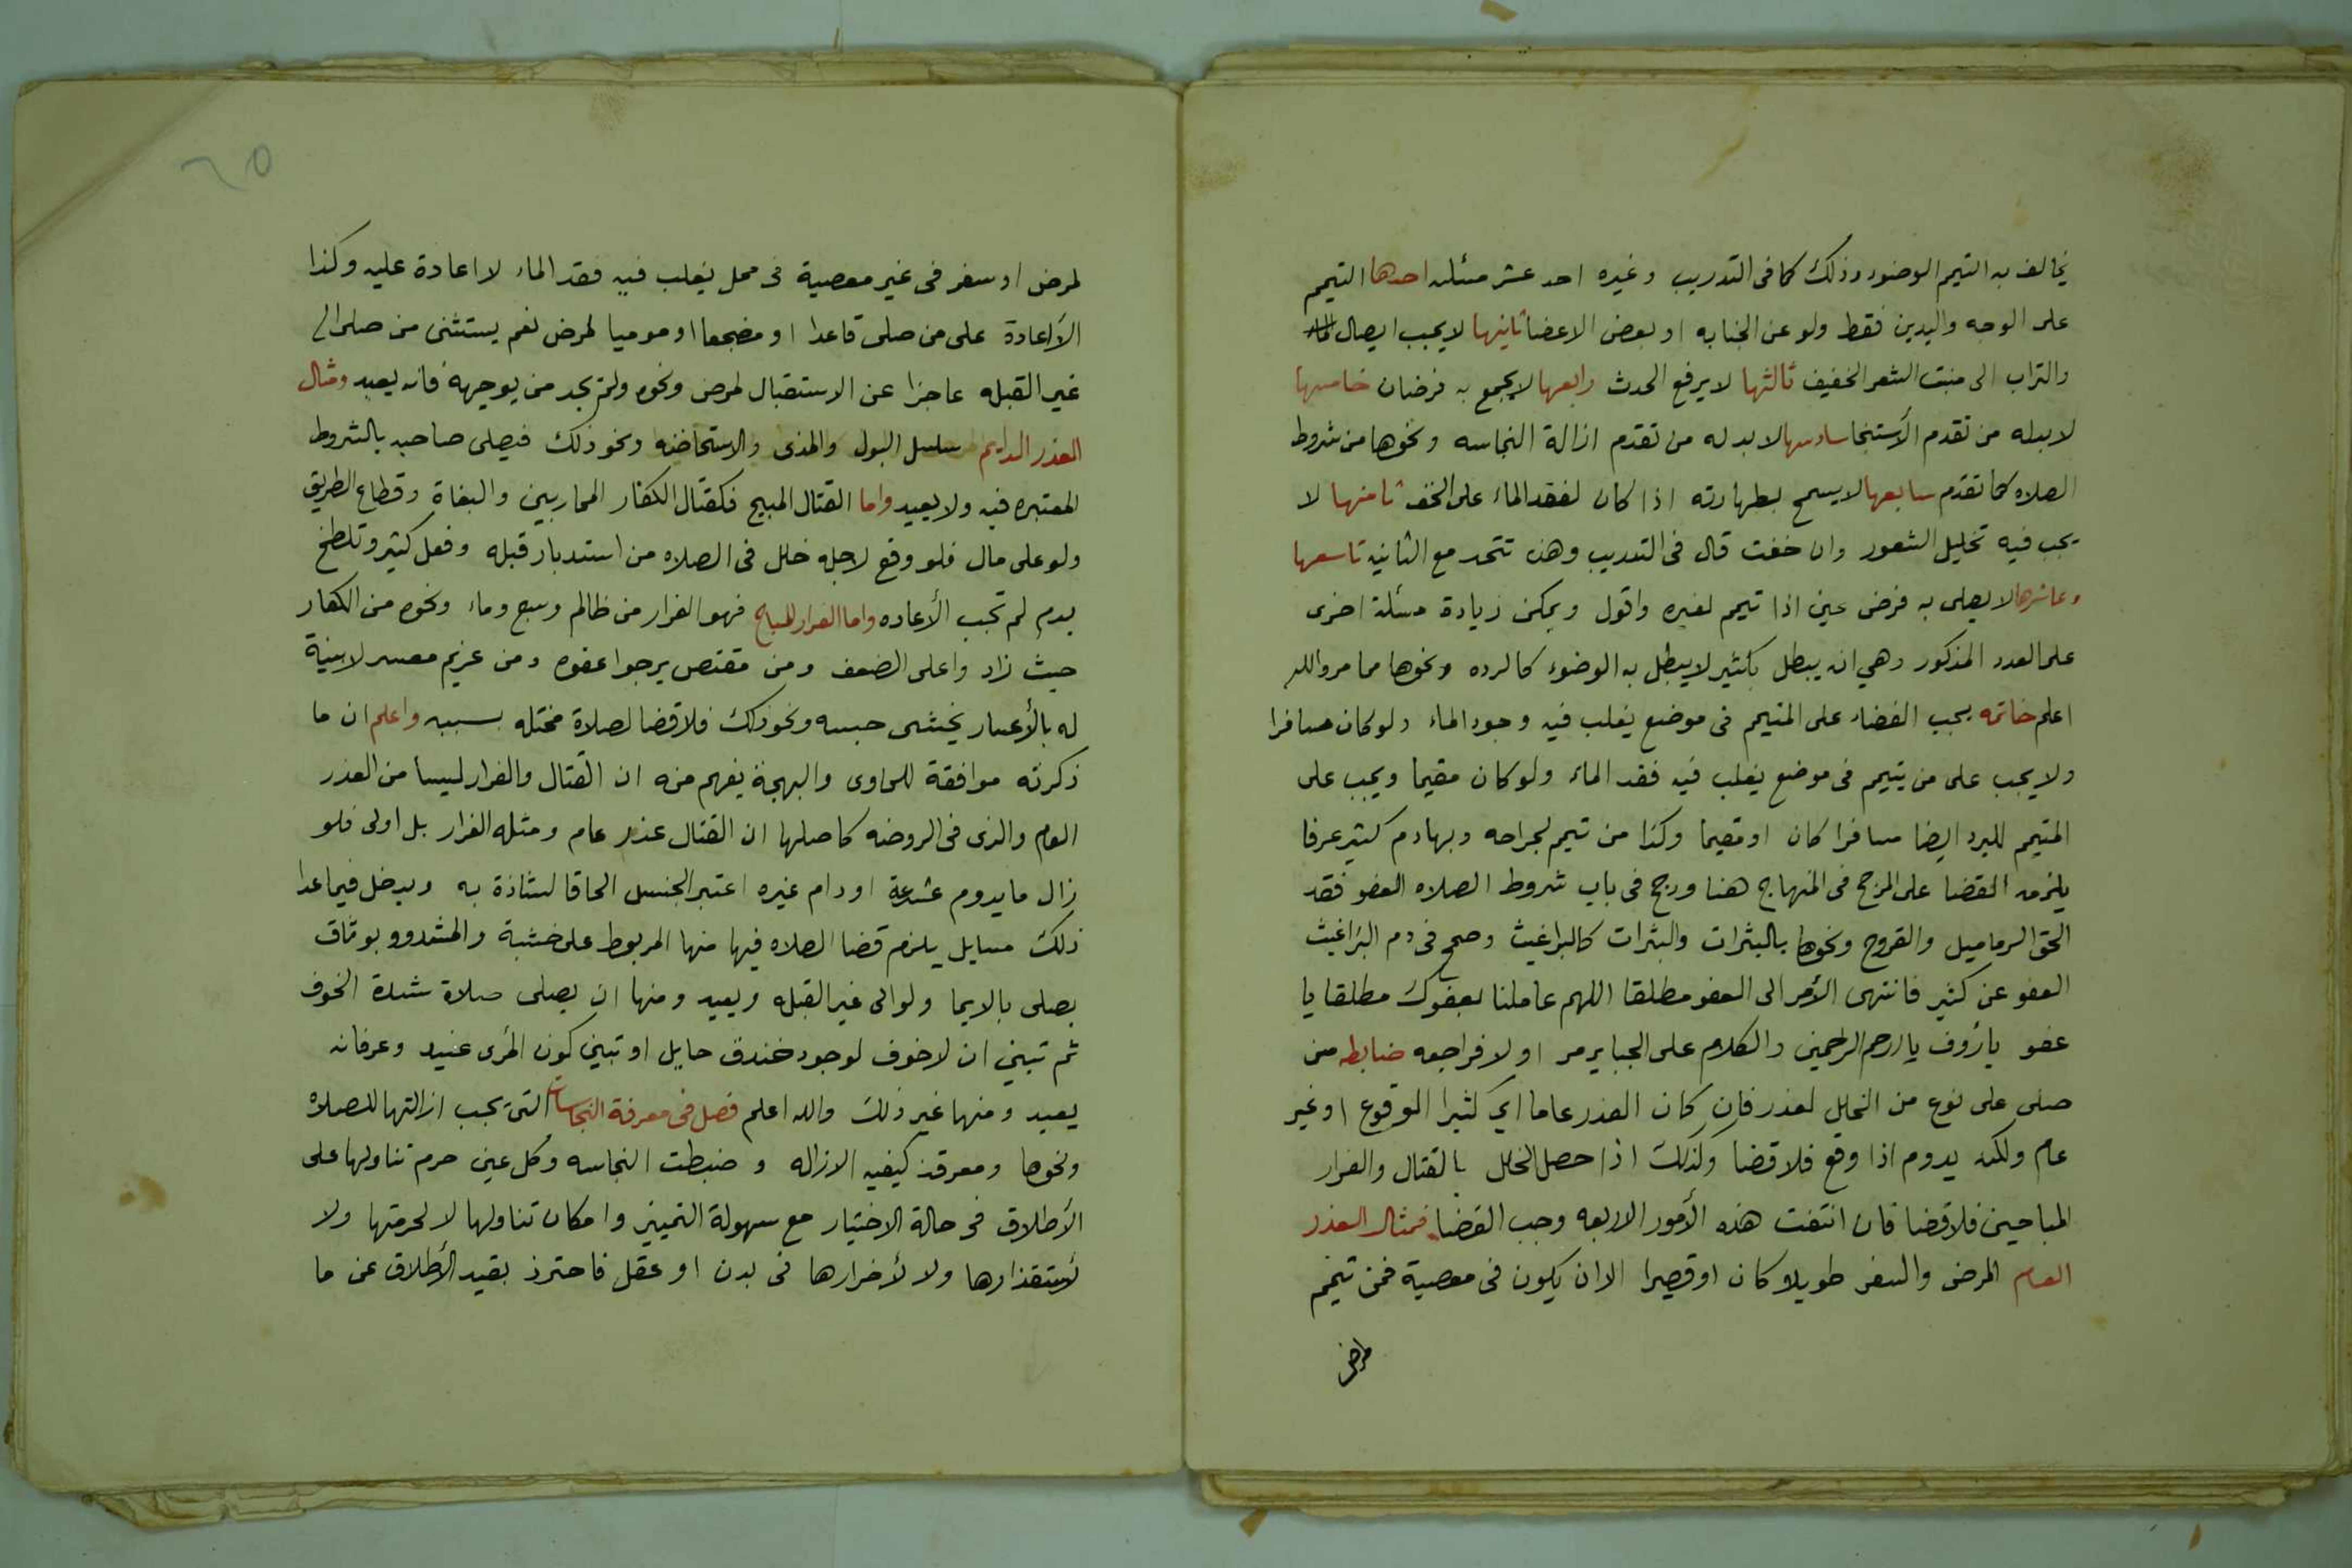 يخالف به التيمم الوضوء وذلك كما فى التدريب وغيره احد عشر مسئله احدها التيمم
على الوجه واليدين فقط ولو عن الجنابه او بعض الاعضا ثانيها لا يجب ايصال
والتراب الى منبت الشعر الخفيف ثالثها لا يرفع الحدث رابعها لا يجمع به فرضان خامسها
لا بدله من تقدم الأستنجا سادسها لا بد له من تقدم ازالة النجاسه ونحوها من شروط
الصلاه كما تقدم سابعها لا يمسح بطهارته اذا كان لفقد الماء على الخف ثامنها لا
يجب فيه تخليل الشعور وان خفت قال فى التدريب وهذه تتحد مع الثانيه تاسعها
وعاشرها لا يصلى به فرض عين اذا تيمم لغيره واقول ويمكن زيادة مسئلة اخرى
على العدد المذكور وهي انه يبطل بكثير لا يبطل به الوضوء كالرده ونحوها مما مر والله
اعلم خاتمه يجب القضاء على المتيمم فى موضع يغلب فيه وجود الماء ولو كان مسافرا
ولا يجب على من تيمم فى موضع يغلب فيه فقد الماء ولو كان مقيما ويجب على
المتيمم للبرد ايضا مسافرا كان او مقيما وكذا من تيمم لجراحه وبها دم كثير عرفا
يلزمه القضا على المرجح فى المنهاج هنا ورجح فى باب شروط الصلاه العفو فقد
الحق الدماميل والقروح ونحوها بالبثرات والبثرات كالبراغيث وصحح فى دم البراغيث
العفو عن كثير فانتهى الأمر الى العفو مطلقا اللهم عاملنا بعفوك مطلقا يا
عفو يا رؤف يا ارحم الراحمين والكلام على الجباير مر اولا فراجعه ضابطه من
صلى على نوع من الخلل لعذر فان كان العذر عاما اي كثير الوقوع او غير
عام ولكنه يدوم اذا وقع فلا قضا وكذلك اذا حصل الخلل بالقتال والفرار
المباحين فلا قضا فان انتفت هذه الأمور الاربعه وجب القضا فمثال العذر
العام المرض والسفر طويلا كان او قصيرا الا ان يكون فى معصية فمن تيمم
لمرض
٦٥
لمرض او سفر فى غير معصية فى محل يغلب فيه فقد الماء لا اعادة عليه وكذا
لا اعادة على من صلى قاعدا او مضجعا او موميا لمرض نعم يستثنى من صلى الى
غير القبله عاجزا عن الاستقبال لمرض ونحوه ولم يجد من يوجهه فانه يعيد ومثال
العذر الدايم سلسل البول والمذى والاستحاضه ونحو ذلك فيصلى صاحبه بالشروط
المعتبره فيه ولا يعيد واما القتال المبيح فكقتال الكفار المحاربين والبغاة وقطاع الطريق
ولو على مال فلو وقع لاجله خلل فى الصلاه من استدبار قبله وفعل كثير وتلطخ
بدم لم تجب الأعاده واما الفرار المباح فهو الفرار من ظالم وسبع وماء ونحوه من الكفار
حيث زاد واعلى الضعف ومن مقتص يرجوا عفوه ومن غريم معسر لا بينة
له بالأعسار يخشى حبسه ونحو ذلك فلا قضا لصلاة مختله بسببه واعلم ان ما
ذكرته موافقة للحاوى والبهجة يفهم منه ان القتال والفرار ليسا من العذر
العام والذى فى الروضه كاصلها ان القتال عذر عام ومثله الفرار بل اولى فلو
زال ما يدوم بسرعة او دام غيره اعتبر الجنس الحاقا لشاذة به ويدخل فيما عدا
ذلك مسايل يلزم قضا الصلاه فيها منها المربوط على خشبة والمشدود بوثاق
يصلى بالايما ولو الى غير القبله ويعيد ومنها ان يصلى صلاة شدة الخوف
ثم تبين ان لا خوف لوجود خندق حايل او تبين كون المرى عنيد وعرفانه
يعيد ومنها غير ذلك والله اعلم فصل فى معرفة النجاسات التى يجب ازالتها للصلاه
ونحوها ومعرفة كيفيه الازاله و ضبطت النجاسه وكل عين حرم تناولها على
الأطلاق فى حالة الاختيار مع سهولة التمييز وامكان تناولها لا لحرمتها ولا
لأستقذارها ولا لأضرارها فى بدن او عقل فاحترز بقيد الأطلاق عن ما